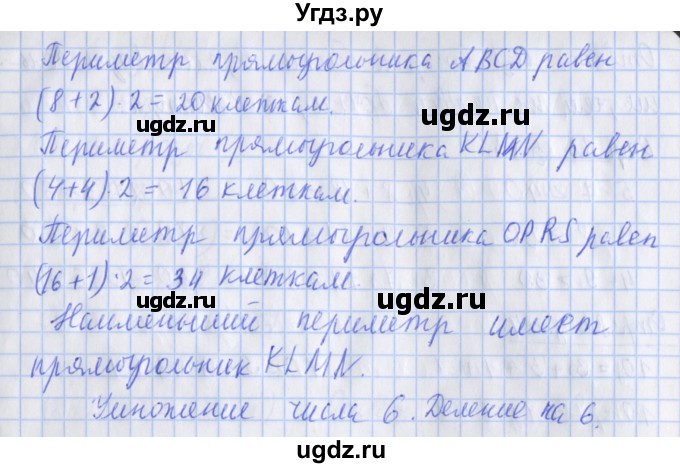 Угдз.ру
Периметр прямоугольника ABCD равен
(8+2)·2 = 20 клеткам.
ugdz.ru ugdz.ru
Периметр прямоугольника KLMN равен
(4+4)·2 = 16 клеткам.
ugdz.ru ugdz.ru
Периметр прямоугольника OPRS равен
(16+1)·2 = 34 клеткам.
ugdz.ru ugdz.ru
Наименьший периметр имеет
прямоугольник KLMN.
ugdz.ru ugdz.ru
Умножение числа 6. Деление на 6.
ugdz.ru ugdz.ru